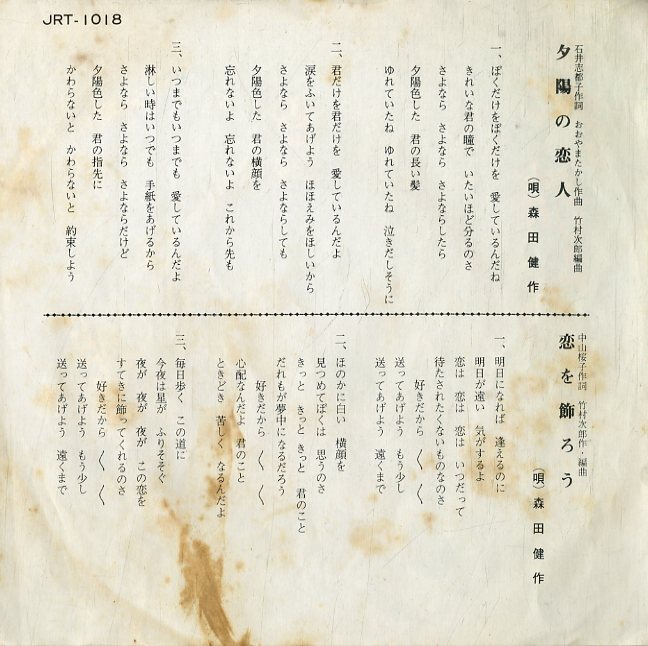 JRT-1018
石井志都子作詞 おおやまたかし作曲 竹村次郎編曲
夕陽の恋人
(唄)森田健作
一、ぼくだけをぼくだけを 愛しているんだね
きれいな君の瞳で いたいほど分るのさ
さよなら さよなら さよならしたら
夕陽色した 君の長い髪
ゆれていたね ゆれていたね 泣きだしそうに
二、君だけを君だけを 愛しているんだよ
涙をふいてあげよう ほほえみをほしいから
さよなら さよなら さよならしても
夕陽色した 君の横顔を
忘れないよ 忘れないよ これから先も
三、いつまでもいつまでも 愛しているんだよ
淋しい時はいつでも 手紙をあげるから
さよなら さよなら さよならだけど
夕陽色した 君の指先に
かわらないと かわらないと 約束しよう
中山桜子作詞 竹村次郎作・編曲
恋を飾ろう
(唄)森田健作
一、明日になれば 逢えるのに
明日が遠い 気がするよ
恋は 恋は 恋は いつだって
待たされたくないものなのさ
好きだから 〱 〱
送ってあげよう もう少し
送ってあげよう 遠くまで
二、ほのかに白い 横顔を
見つめてぼくは 思うのさ
きっと きっと きっと 君のこと
だれもが夢中になるだろう
好きだから 〱 〱
心配なんだよ 君のこと
ときどき 苦しく なるんだよ
三、毎日歩く この道に
今夜は星が ふりそそぐ
夜が 夜が 夜が この恋を
すてきに飾ってくれるのさ
好きだから 〱 〱
送ってあげよう もう少し
送ってあげよう 遠くまで